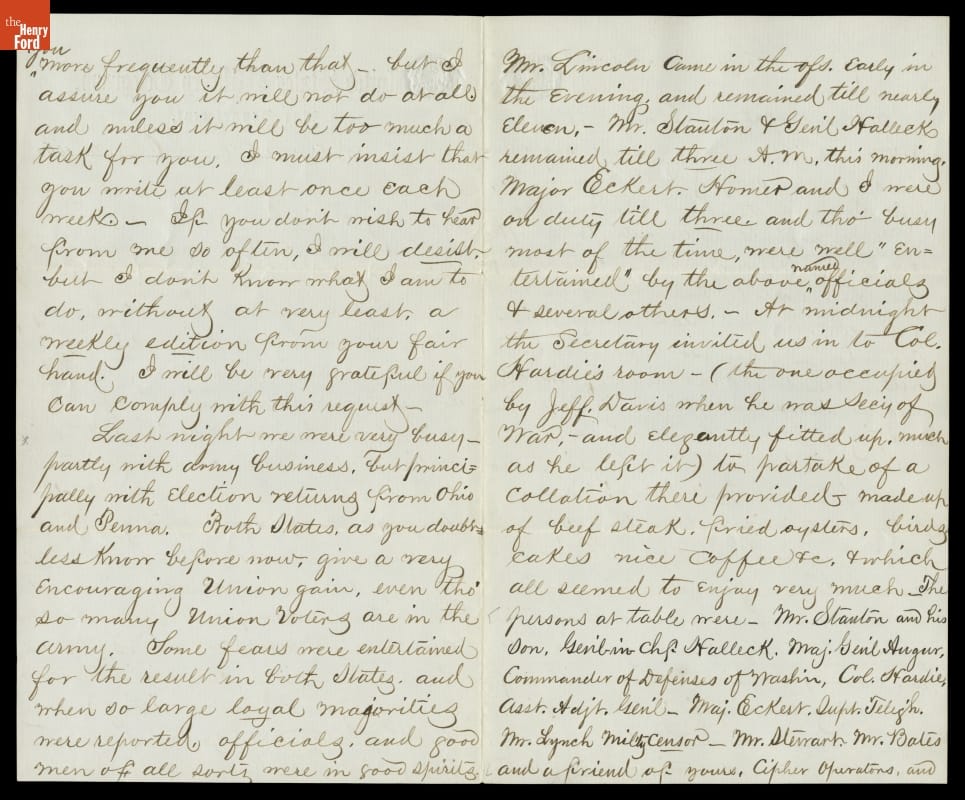 the
Henry
Ford
you
"more frequently than that – but I
assure you it will not do at all
and unless it will be too much a
task for you, I must insist that
you write at least once each
week – If you don't wish to hear
from me so often, I will desist,
but I don't know what I am to
do, without at very least, a
weekly edition from your fair
hand. I will be very grateful if you
can comply with this request –
Last night we were very busy –
partly with army business, but princi=
pally with Election returns from Ohio
and Penna. Both States, as you doubt=
less know before now, give a very
encouraging Union gain, even tho'
so many Union Voters are in the
army. Some fears were entertained
for the result in both States, and
when so large loyal majorities
were reported, officials, and good
men of all sorts were in good spirits.
Mr. Lincoln came in the ofs. early in
the Evening, and remained till nearly
Eleven, – Mr. Stanton & Genl Halleck
remained till three A.M. this morning.
Major Eckert, Homer and I were
on duty till three and tho' busy
most of the time, were well "en=
tertained" by the above named officials
& several others. – At midnight
the Secretary invited us in to Col.
Hardie's room – (the one occupied
by Jeff. Davis when he was Secy of
War, – and elegantly fitted up, much
as he left it) to partake of a
collation there provided – made up
of beef steak, fried oysters, birds
cakes nice coffee &c, & which
all seemed to enjoy very much – The
persons at table were – Mr. Stanton and his
Son, Genl-in-Chf. Halleck, Maj. Genl Augur,
Commander of Defenses of Washn, Col. Hardie,
Asst. Adjt. Genl – Maj. Eckert, Supt. Telegh.
Mr. Lynch Milty Censor – Mr. Stewart, Mr. Bates
and a friend of yours, Cipher Operators, and